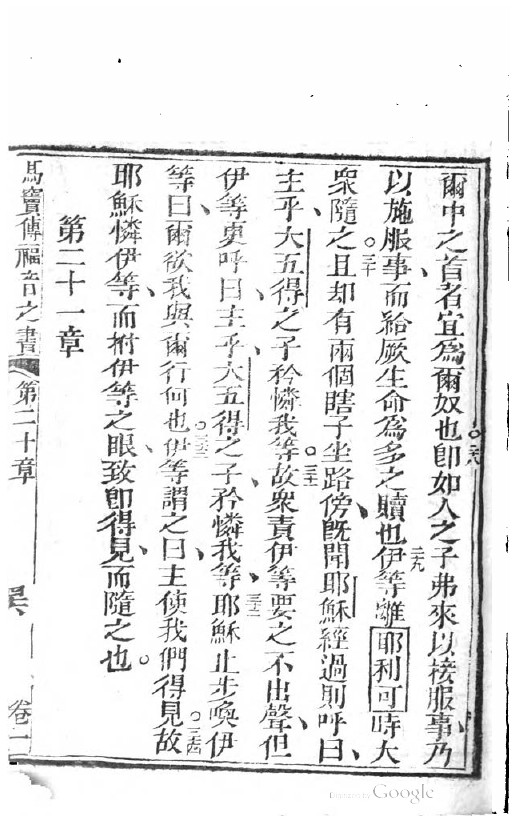 爾中之首者宜爲爾奴也○二八卽如人之子弗來以接服事乃
以施服事而給厥生命爲多之贖也二九伊等離耶利可時大
衆隨之○三十且却有兩個瞎子坐路傍旣聞耶穌經過則呼曰
主乎大五得之子矜憐我等○三一故衆責伊等要之不出聲但
伊等更呼曰主乎大五得之子矜憐我等三二耶穌止步喚伊
等曰爾欲我與爾行何也○三三伊等謂之曰主使我們得見○三四故
耶穌憐伊等而拊伊等之眼致卽得見而隨之也。
第二十一章
馬竇傳福音之書 第二十章 卷一
Digitized by Google